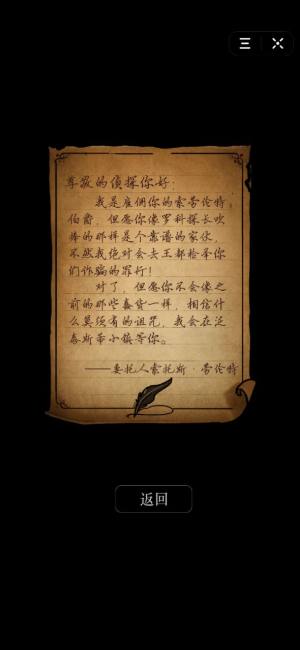 尊敬的侦探你好：
我是雇佣你的索劳伦特
伯爵，但愿你像罗科探长吹
捧的那样是个靠谱的家伙，
不然我绝对会去王都检举你
们诈骗的罪行！
对了，但愿你不会像之
前的那些蠢货一样，相信什
么莫须有的诅咒，我会在泛
泰斯蒂小镇等你。
——委托人索托斯·劳伦特
返回